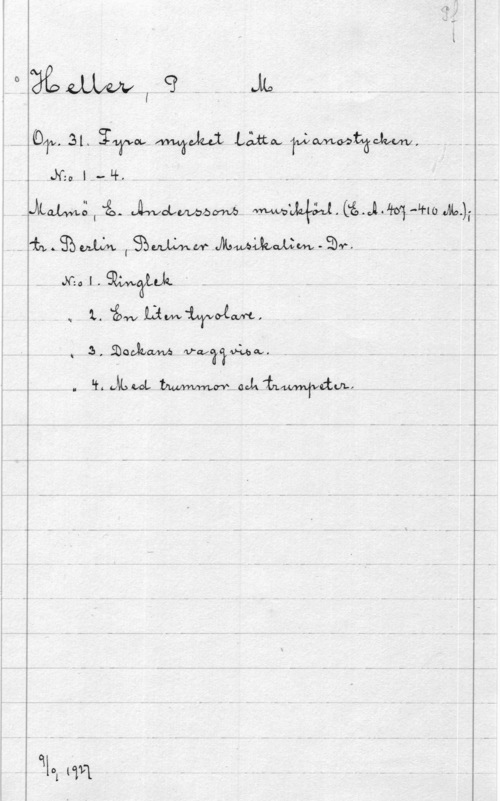 Heller, P M
Op. 31. Fyra mycket lätta pianostycken.
N:o 1 - 4.
Malmö, E. Anderssons musikförl. (E.A. 407-410 M.);
tr. Berlin, Berliner Musikalien-Dr.
N:o 1. Ringlek
" 2. En liten tyrolare.
" 3. Dockans vaggvisa.
" 4. Med trummor och trumpeter.
9/9 1927